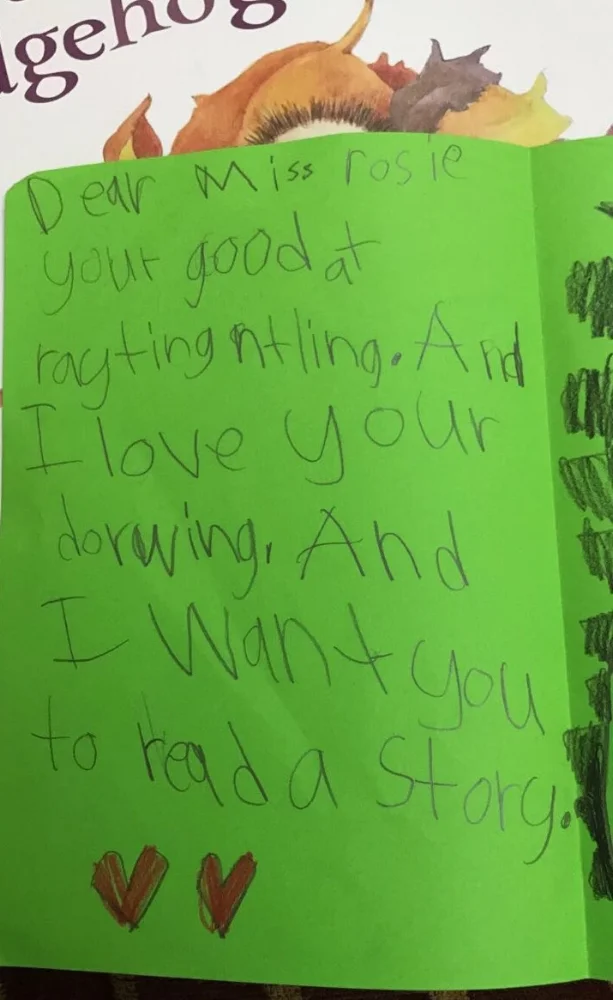 dgehog
Dear Miss rosie
your good at
raytingntling. And
I love your
dorwing. And
I Want you
to read a Story.